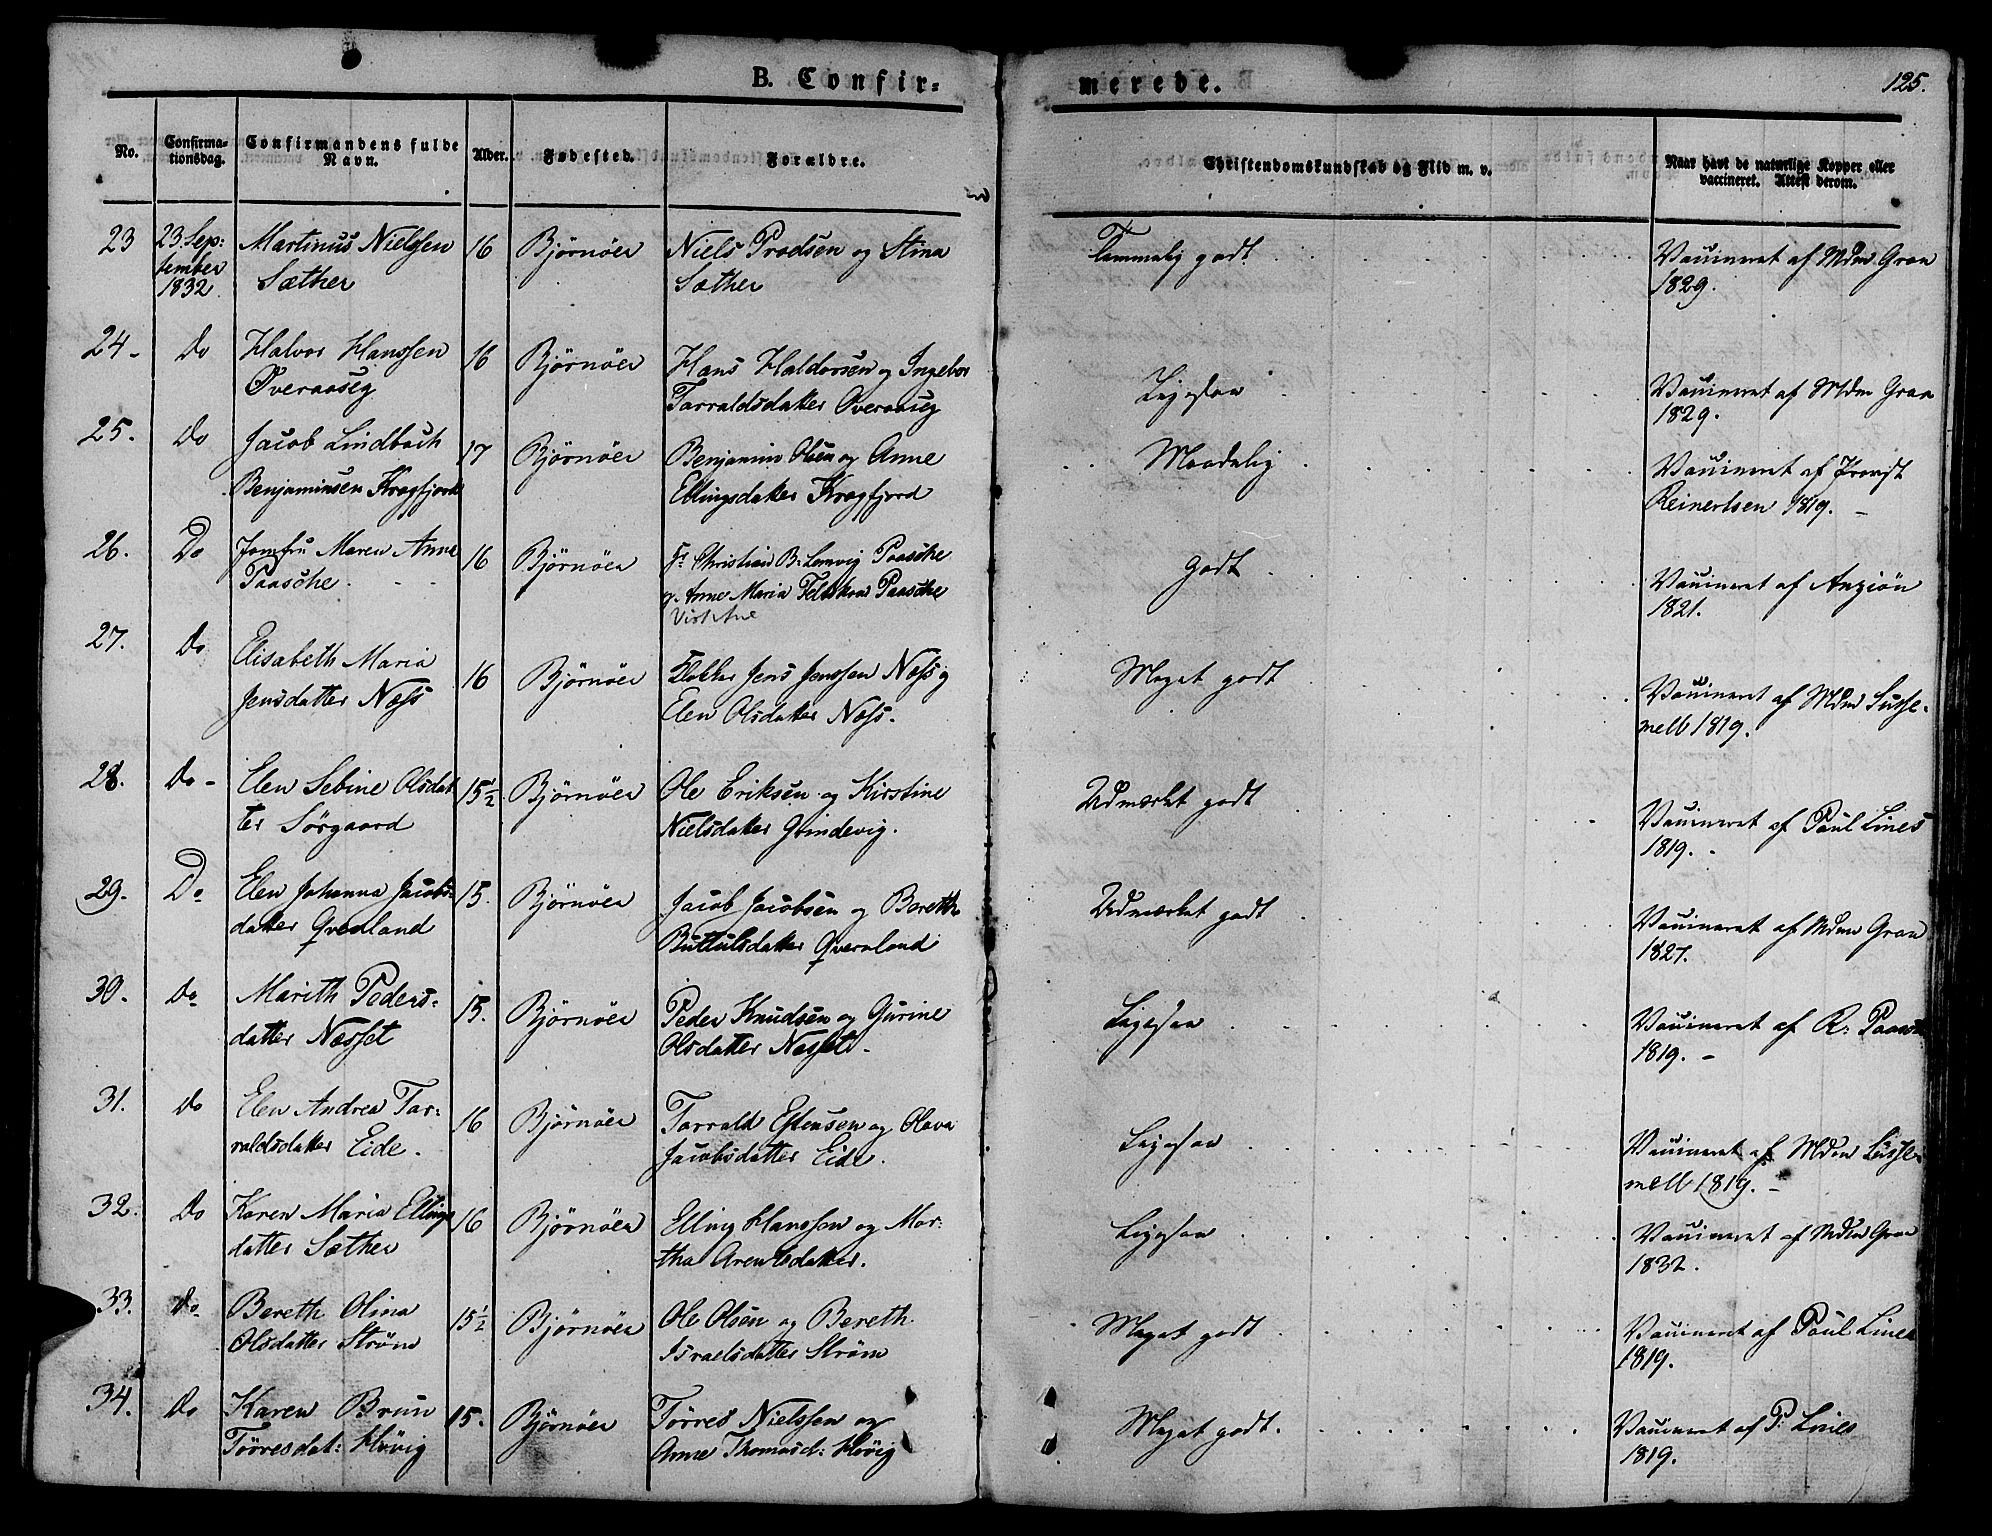 B. Confirmerede.
125.
No.
Confirmationsdag.
Confirmandens fulde Navn.
Alder.
Fødested.
Forældre.
Christendomskundskab og Flid m. v.
Naar havt de naturlige Kopper eller vaccineret. Attest derom.
23 23. Sep: Martinus Nielsen 16 Bjørnöer Niels Prodsen og Stina Temmelig godt Vaccineret af Mdm Gran
tember Sæther Sæther 1829.
1832
24 - Do Halvor Hanssen 16 Bjørnöer Hans Haldorsen og Ingebor Ligesaa Vaccineret af Mdm Gran
Overaaseg Tarraldsdatter Overaaseg 1829.
25. Do Jacob Lindbach 17 Bjørnöer Benjamin Olsen og Anne Maadelig Vaccineret af Provst
Benjaminsen Kragfjord Ellingsdatter Kragfjord Reinertsen 1819. -
26. Do Jomfru Maren Anna 16 Bjørnöer Hr Christian B: Lemvig Paasche Godt Vaccineret af
Paasche og Anne Maria Paasche 1821.
27. Do Elisabeth Maria 16 Bjørnöer Klokker Jens Jenssen Næss og Meget godt Vaccineret af Mdm Susse-
Jensdatter Næss Elen Olsdatter Næss. mell 1819.
28. Do - Elen Sebine Olsdat 15½ Bjørnöer Ole Eriksen og Kirstine Udmærket godt Vaccineret af Paul Lines
ter Sörgaard Nielsdatter Grindevig. 1819. -
29. Do Elen Johanna Jacobs- 15. Bjørnöer Jacob Jacobsen og Bereth Udmærket godt Vaccineret af Mdm Gran
datter Qvenland Qvernland 1827.
30. Do Marith Peders- 15. Bjørnöer Peder Knudsen og Gurine Ligesaa Vaccineret af R: Paasche
datter Næsset Olsdatter Næsset - 1819. -
31. Do Elen Andrea Tar- 16 Bjørnöer Tarrald Estensen og Olava Ligesaa Vaccineret af Mdm Susse-
raldsdatter Eide. Jacobsdatter Eide. mell 1819. -
32. Do Karen Maria Ellings 16 Bjørnöer Elling Hanssen og Mar- Ligesaa Vaccineret af Mdm Gran
datter Sæther tha Arentsdatter. 1832.
33. Do Bereth Olina 15½ Bjørnöer Ole Olsen og Bereth Meget godt Vaccineret af Paul Lines
Olsdatter Strøm Israelsdatter Strøm 1819.
34. Do Karen Brun 15. Bjørnöer Törres Nielssen og Meget godt. Vaccineret af P: Lines
Törresdat: Høvig Anne Thomasd: Høvig 1819.